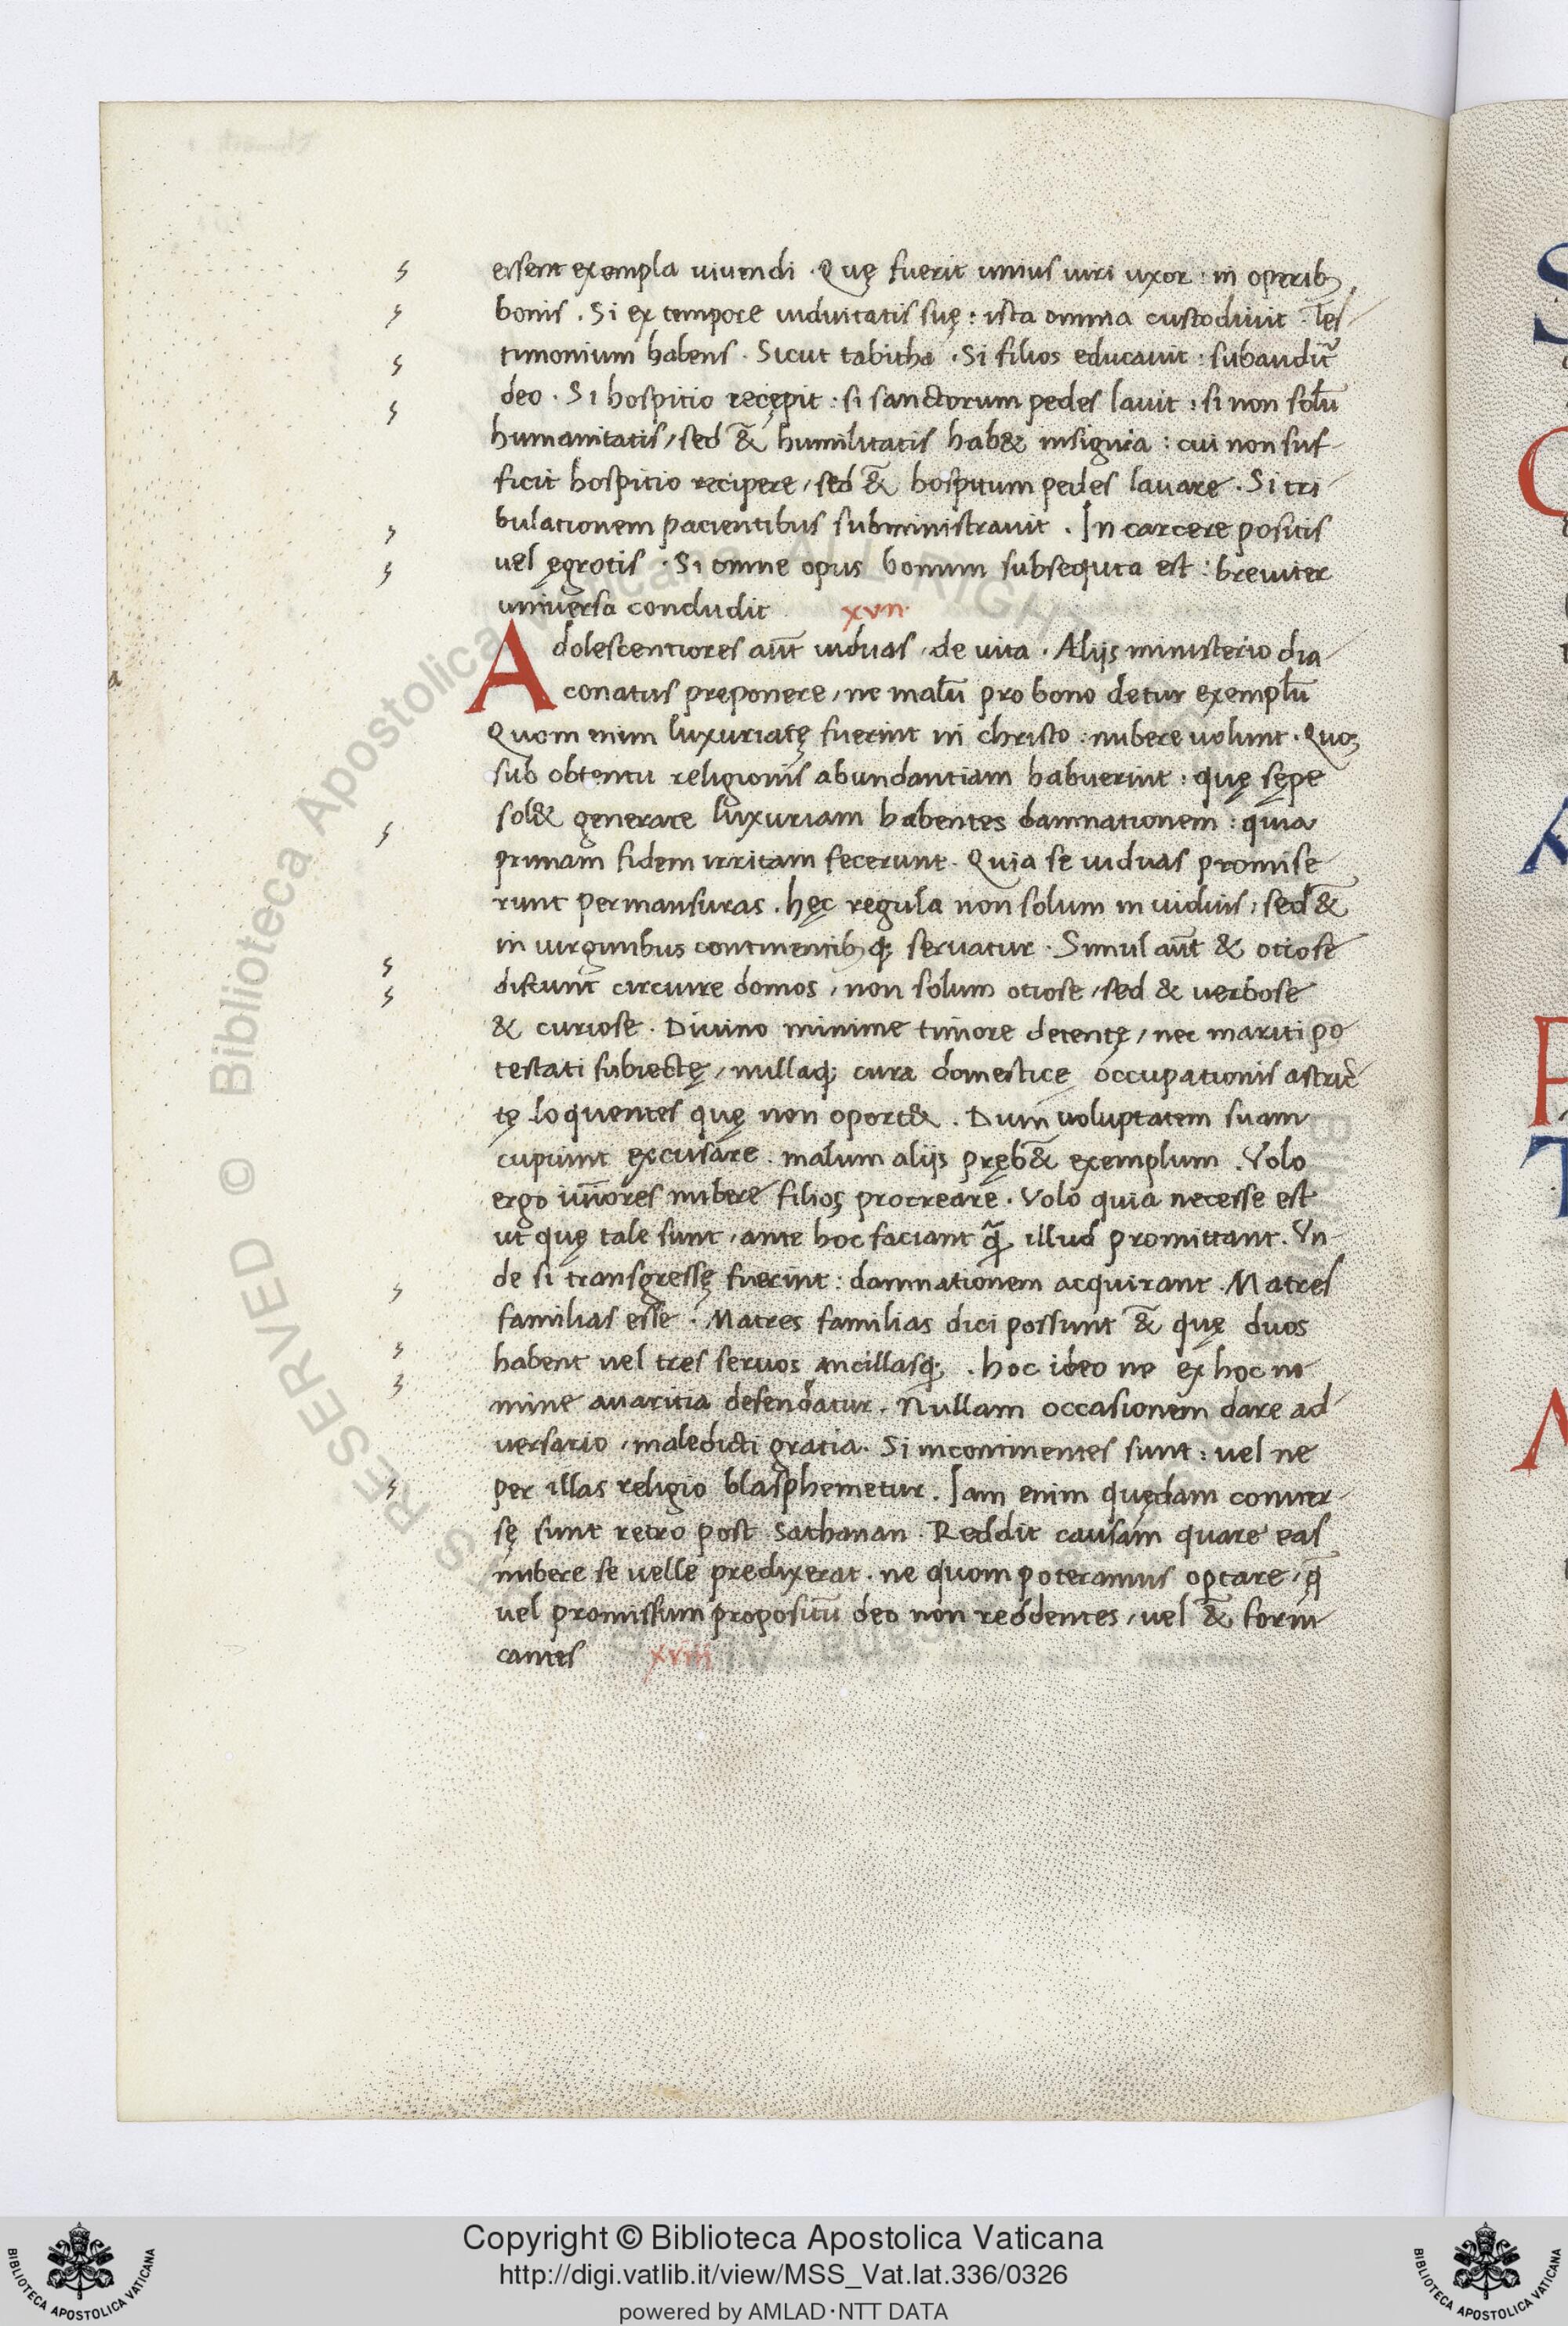 essent exempla uiuendi . Quę fuerit unius uiri uxor : in operibꝫ
bonis . Si ex tempore uiduitatis suę : ista omnia custodiuit . Tes/
timonium habens . Sicut tabitha . Si filios educauit : subaudit᷑
deo . Si hospitio recępit : si sanctorum pedes lauit : si non solū
humanitatis / sed &̄ humilitatis hab& insignia : cui non suf-
ficit hospitio recipere / sed &̄ hospitum pedes lauare . Si tri/
bulationem pacientibus subministrauit . In carcere positis
uel ęgrotis . Si omne opus bonum subsequuta est : breuiter
uniuersa concludit xvii.
Adolescentiores aūt uiduas / de uita . Alijs ministerio dia/
conatus preponere / ne malū pro bono detur exemplū
Quom enim luxuriatę fuerint in christo : nubere uolunt . Quoꝫ
sub obtentu religionis abundantiam habuerint : quę sępe
sol& generare luxuriam habentes damnationem : quia
primam fidem irritam fecerunt . Quia se uiduas promise
runt permansuras . hęc regula non solum in uiduis / sed &̄
in uirginibus continentibꝫ qꝫ seruatur . Simul aūt & otiose
discunt circuire domos / non solum otiose / sed & uerbose
& curiose . Diuino minime timore detentę / nec mariti po
testati subiectę / nullaqꝫ cura domesticę occupationis astric̄
tę loquentes quę non oport& . Dum uoluptatem suam
cupiunt excusare . malum alijs pręb&̄ exemplum . Volo
ergo iūiores nubere filios procreare . Volo quia necesse est
ut quę tale sunt / ante hoc faciant q̄ illud promittant . Vn-
de si transgressę fuerint : damnationem acquirant . Matres
familias esse . Matres familias dici possunt &̄ quę duos
habent uel tres seruos ancillasqꝫ . hoc ideo ne ex hoc no
mine auaritia defendatur . Nullam occasionem dare ad/
uersario / maledicti gratia . Si incontinentes sunt : uel ne
per illas religio blasphemetur . Iam enim quędam conuer/
sę sunt retro post Sathanan . Reddit causam quare eas
nubere se uelle predixerat . ne quom poteramus optare / q̄
uel promissum propositū deo non reddentes / uel &̄ forni
cantes xviii
Copyright © Biblioteca Apostolica Vaticana
http://digi.vatlib.it/view/MSS_Vat.lat.336/0326
powered by AMLAD·NTT DATA